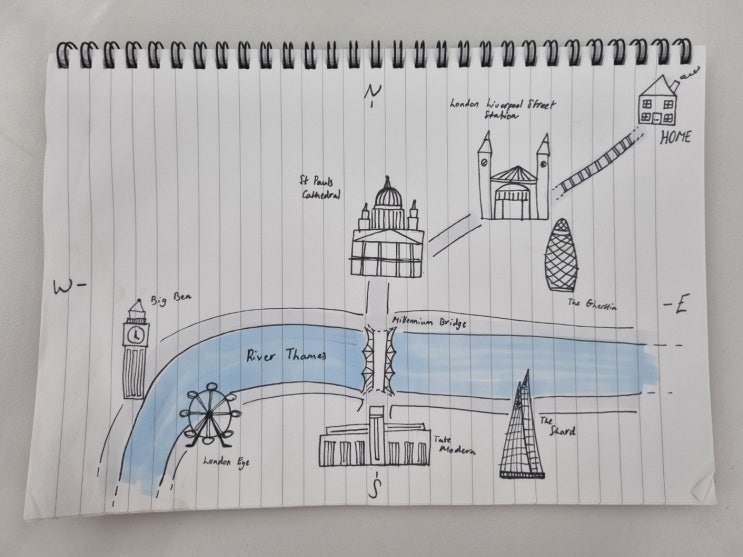 N
London Liverpool Street
Station
HOME
St Pauls
Cathedral
W
Big Ben
The Gherkin
E
Millennium Bridge
River Thames
The
Shard
Tate
Modern
London Eye
S